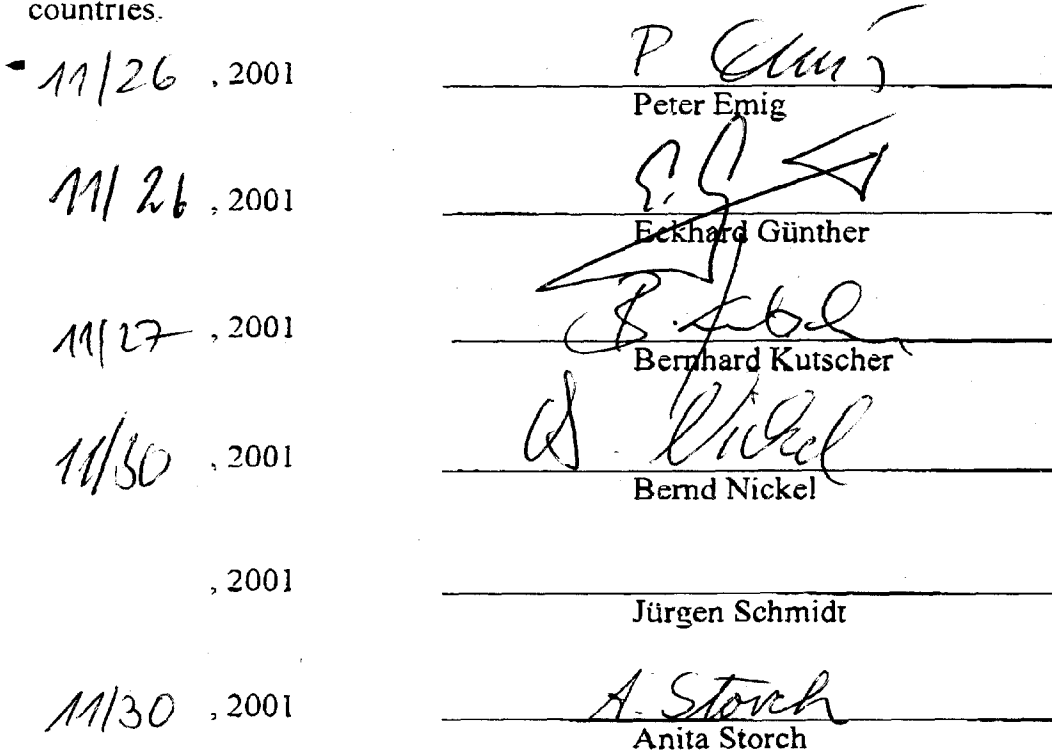 countries.
11/26 , 2001 P Emig
Peter Emig
11/26 , 2001 E. G
Eckhard Günther
11/27 , 2001 B. Kutscher
Bernhard Kutscher
11/30 , 2001 B. Nickel
Bernd Nickel
, 2001
Jürgen Schmidt
11/30 , 2001 A. Storch
Anita Storch